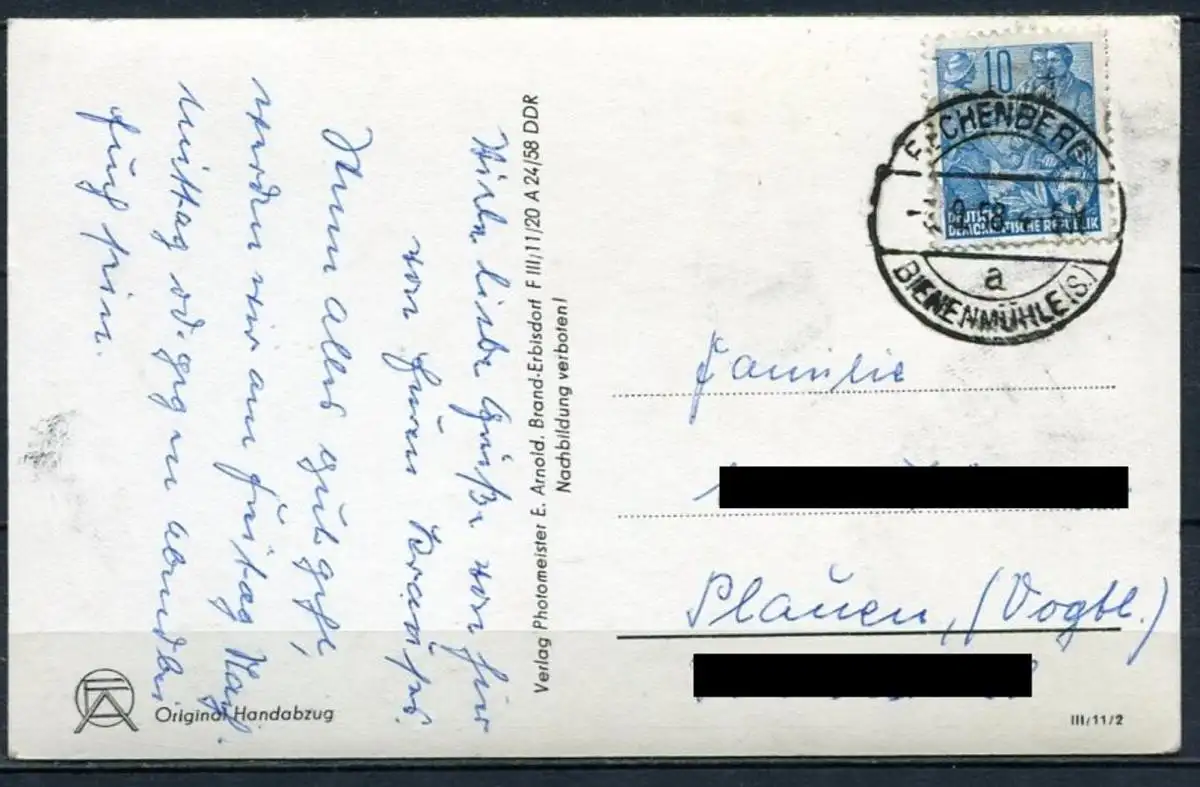 Viele liebe Grüße von hier
von Euren
Wenn alles gut geht,
werden wir am Freitag Nach-
mittag od. gegen abend bei
Euch sein.
Verlag Photomeister E. Arnold. Brand-Erbisdorf F III/11/20 A 24/58 DDR
Nachbildung verboten!
Original Handabzug
10
DEUTSCHE
DEMOKRATISCHE REPUBLIK
RECHENBERG
9.58
a
BIENENMÜHLE (S)
Familie
Plauen, (Vogtl.)
III/11/2